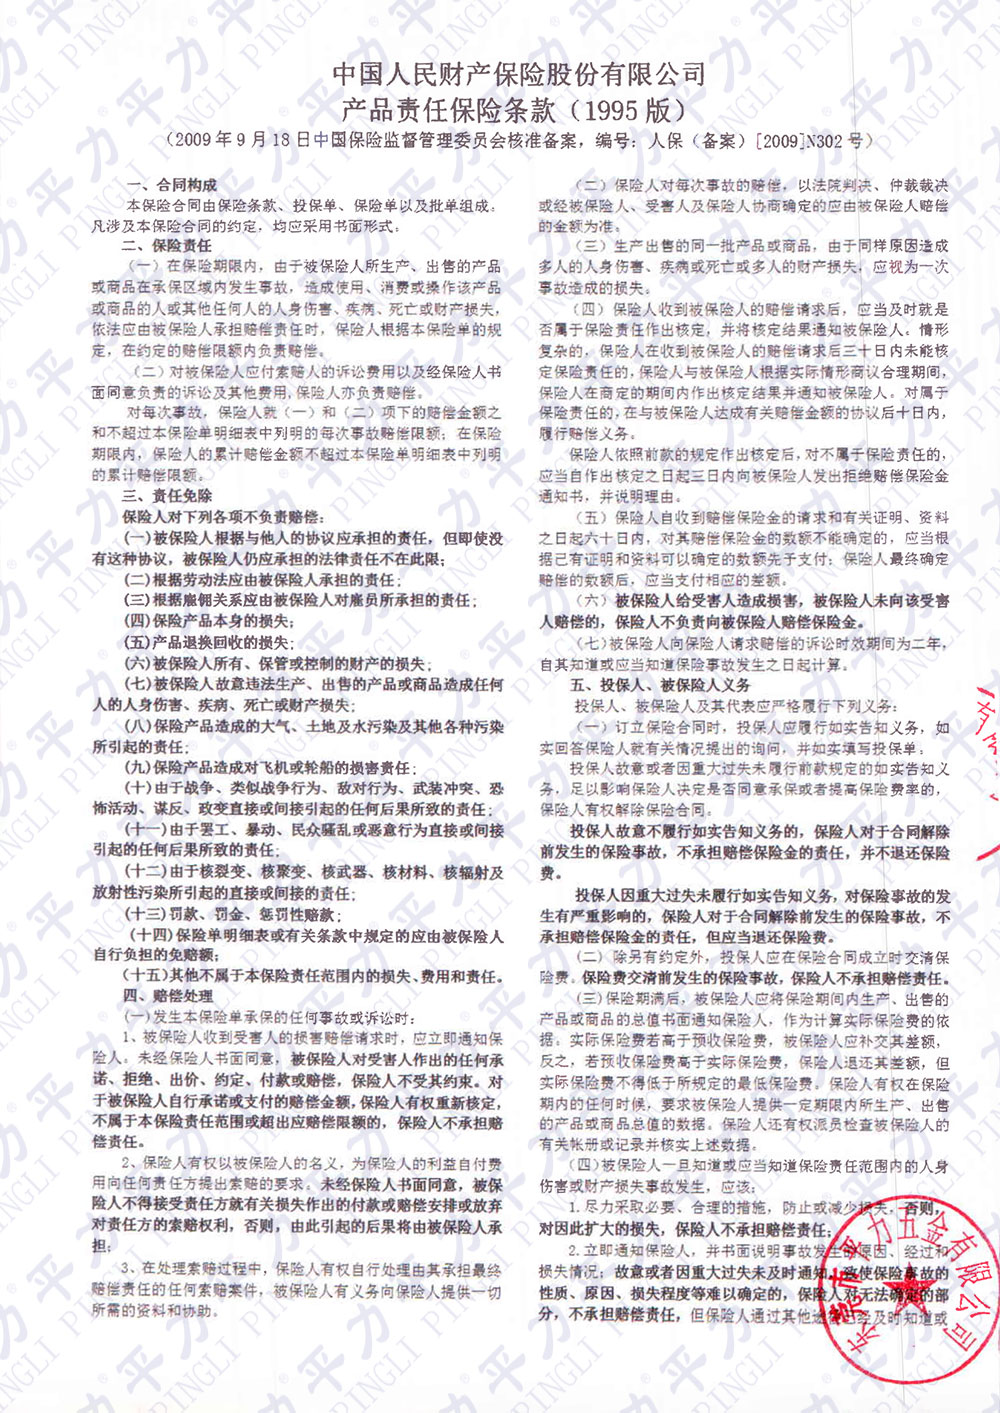 中国人民财产保险股份有限公司
产品责任保险条款（1995 版）
（2009 年 9 月 18 日中国保险监督管理委员会核准备案，编号：人保（备案）[2009]N302 号）
一、合同构成
本保险合同由保险条款、投保单、保险单以及批单组成。
凡涉及本保险合同的约定，均应采用书面形式。
二、保险责任
（一）在保险期限内，由于被保险人所生产、出售的产品
或商品在承保区域内发生事故，造成使用、消费或操作该产品
或商品的人或其他任何人的人身伤害、疾病、死亡或财产损失，
依法应由被保险人承担赔偿责任时，保险人根据本保险单的规
定，在约定的赔偿限额内负责赔偿。
（二）对被保险人应付索赔人的诉讼费用以及经保险人书
面同意负责的诉讼及其他费用,保险人亦负责赔偿。
对每次事故，保险人就（一）和（二）项下的赔偿金额之
和不超过本保险单明细表中列明的每次事故赔偿限额；在保险
期限内，保险人的累计赔偿金额不超过本保险单明细表中列明
的累计赔偿限额。
三、责任免除
保险人对下列各项不负责赔偿：
(一)被保险人根据与他人的协议应承担的责任，但即使没
有这种协议，被保险人仍应承担的法律责任不在此限；
(二)根据劳动法应由被保险人承担的责任；
(三)根据雇佣关系应由被保险人对雇员所承担的责任；
(四)保险产品本身的损失；
(五)产品退换回收的损失；
(六)被保险人所有、保管或控制的财产的损失；
(七)被保险人故意违法生产、出售的产品或商品造成任何
人的人身伤害、疾病、死亡或财产损失；
(八)保险产品造成的大气、土地及水污染及其他各种污染
所引起的责任；
(九)保险产品造成对飞机或轮船的损害责任；
(十)由于战争、类似战争行为、敌对行为、武装冲突、恐
怖活动、谋反、政变直接或间接引起的任何后果所致的责任；
(十一)由于罢工、暴动、民众骚乱或恶意行为直接或间接
引起的任何后果所致的责任；
(十二)由于核裂变、核聚变、核武器、核材料、核辐射及
放射性污染所引起的直接或间接的责任；
(十三)罚款、罚金、惩罚性赔款；
(十四)保险单明细表或有关条款中规定的应由被保险人
自行负担的免赔额；
(十五)其他不属于本保险责任范围内的损失、费用和责任。
四、赔偿处理
(一)发生本保险单承保的任何事故或诉讼时：
1、被保险人收到受害人的损害赔偿请求时，应立即通知保
险人。未经保险人书面同意，被保险人对受害人作出的任何承
诺、拒绝、出价、约定、付款或赔偿，保险人不受其约束。对
于被保险人自行承诺或支付的赔偿金额,保险人有权重新核定，
不属于本保险责任范围或超出应赔偿限额的，保险人不承担赔
偿责任。
2、保险人有权以被保险人的名义，为保险人的利益自付费
用向任何责任方提出索赔的要求。未经保险人书面同意，被保
险人不得接受责任方就有关损失作出的付款或赔偿安排或放弃
对责任方的索赔权利，否则，由此引起的后果将由被保险人承
担；
3、在处理索赔过程中，保险人有权自行处理由其承担最终
赔偿责任的任何索赔案件，被保险人有义务向保险人提供一切
所需的资料和协助。
（二）保险人对每次事故的赔偿，以法院判决、仲裁裁决
或经被保险人、受害人及保险人协商确定的应由被保险人赔偿
的金额为准。
（三）生产出售的同一批产品或商品，由于同样原因造成
多人的人身伤害、疾病或死亡或多人的财产损失，应视为一次
事故造成的损失。
（四）保险人收到被保险人的赔偿请求后，应当及时就是
否属于保险责任作出核定，并将核定结果通知被保险人。情形
复杂的，保险人在收到被保险人的赔偿请求后三十日内未能核
定保险责任的，保险人与被保险人根据实际情形商议合理期间，
保险人在商定的期间内作出核定结果并通知被保险人。对属于
保险责任的,在与被保险人达成有关赔偿金额的协议后十日内，
履行赔偿义务。
保险人依照前款的规定作出核定后,对不属于保险责任的，
应当自作出核定之日起三日内向被保险人发出拒绝赔偿保险金
通知书，并说明理由。
（五）保险人自收到赔偿保险金的请求和有关证明、资料
之日起六十日内，对其赔偿保险金的数额不能确定的，应当根
据已有证明和资料可以确定的数额先予支付；保险人最终确定
赔偿的数额后，应当支付相应的差额。
（六）被保险人给受害人造成损害，被保险人未向该受害
人赔偿的，保险人不负责向被保险人赔偿保险金。
(七)被保险人向保险人请求赔偿的诉讼时效期间为二年，
自其知道或应当知道保险事故发生之日起计算。
五、投保人、被保险人义务
投保人、被保险人及其代表应严格履行下列义务：
（一）订立保险合同时，投保人应履行如实告知义务，如
实回答保险人就有关情况提出的询问，并如实填写投保单。
投保人故意或者因重大过失未履行前款规定的如实告知义
务，足以影响保险人决定是否同意承保或者提高保险费率的，
保险人有权解除保险合同。
投保人故意不履行如实告知义务的，保险人对于合同解除
前发生的保险事故，不承担赔偿保险金的责任，并不退还保险
费。
投保人因重大过失未履行如实告知义务，对保险事故的发
生有严重影响的，保险人对于合同解除前发生的保险事故，不
承担赔偿保险金的责任，但应当退还保险费。
（二）除另有约定外，投保人应在保险合同成立时交清保
险费。保险费交清前发生的保险事故，保险人不承担赔偿责任。
(三)保险期满后，被保险人应将保险期间内生产、出售的
产品或商品的总值书面通知保险人，作为计算实际保险费的依
据。实际保险费若高于预收保险费，被保险人应补交其差额，
反之，若预收保险费高于实际保险费，保险人退还其差额，但
实际保险费不得低于所规定的最低保险费。保险人有权在保险
期内的任何时候，要求被保险人提供一定期限内所生产、出售
的产品或商品总值的数据。保险人还有权派员检查被保险人的
有关帐册或记录并核实上述数据。
(四)被保险人一旦知道或应当知道保险责任范围内的人身
伤害或财产损失事故发生，应该：
1.尽力采取必要、合理的措施，防止或减少损失，否则，
对因此扩大的损失，保险人不承担赔偿责任；
2.立即通知保险人，并书面说明事故发生的原因、经过和
损失情况；故意或者因重大过失未及时通知，致使保险事故的
性质、原因、损失程度等难以确定的，保险人对无法确定的部
分，不承担赔偿责任，但保险人通过其他途径已经及时知道或
平力
PINGLI